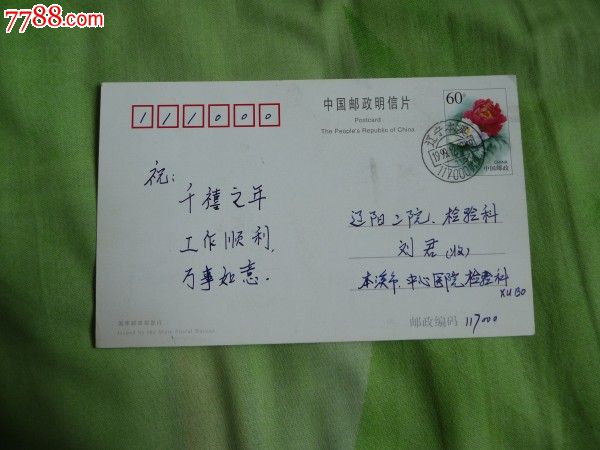 7788.com
111000
中国邮政明信片
Postcard
The People's Republic of China
60分
CHINA
中国邮政
117000
祝:
千禧之年
工作顺利,
万事如意.
辽阳二院、检验科
刘君(收)
本溪市中心医院检验科
XU BO
邮政编码 117000
国家邮政局发行
Issued by the State Postal Bureau